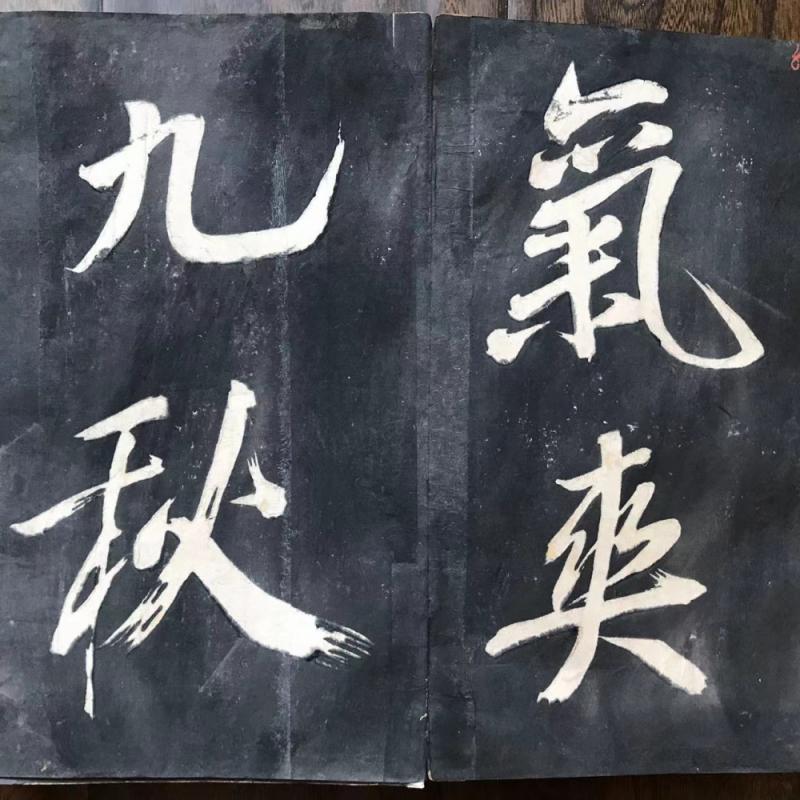 氣爽
九秋